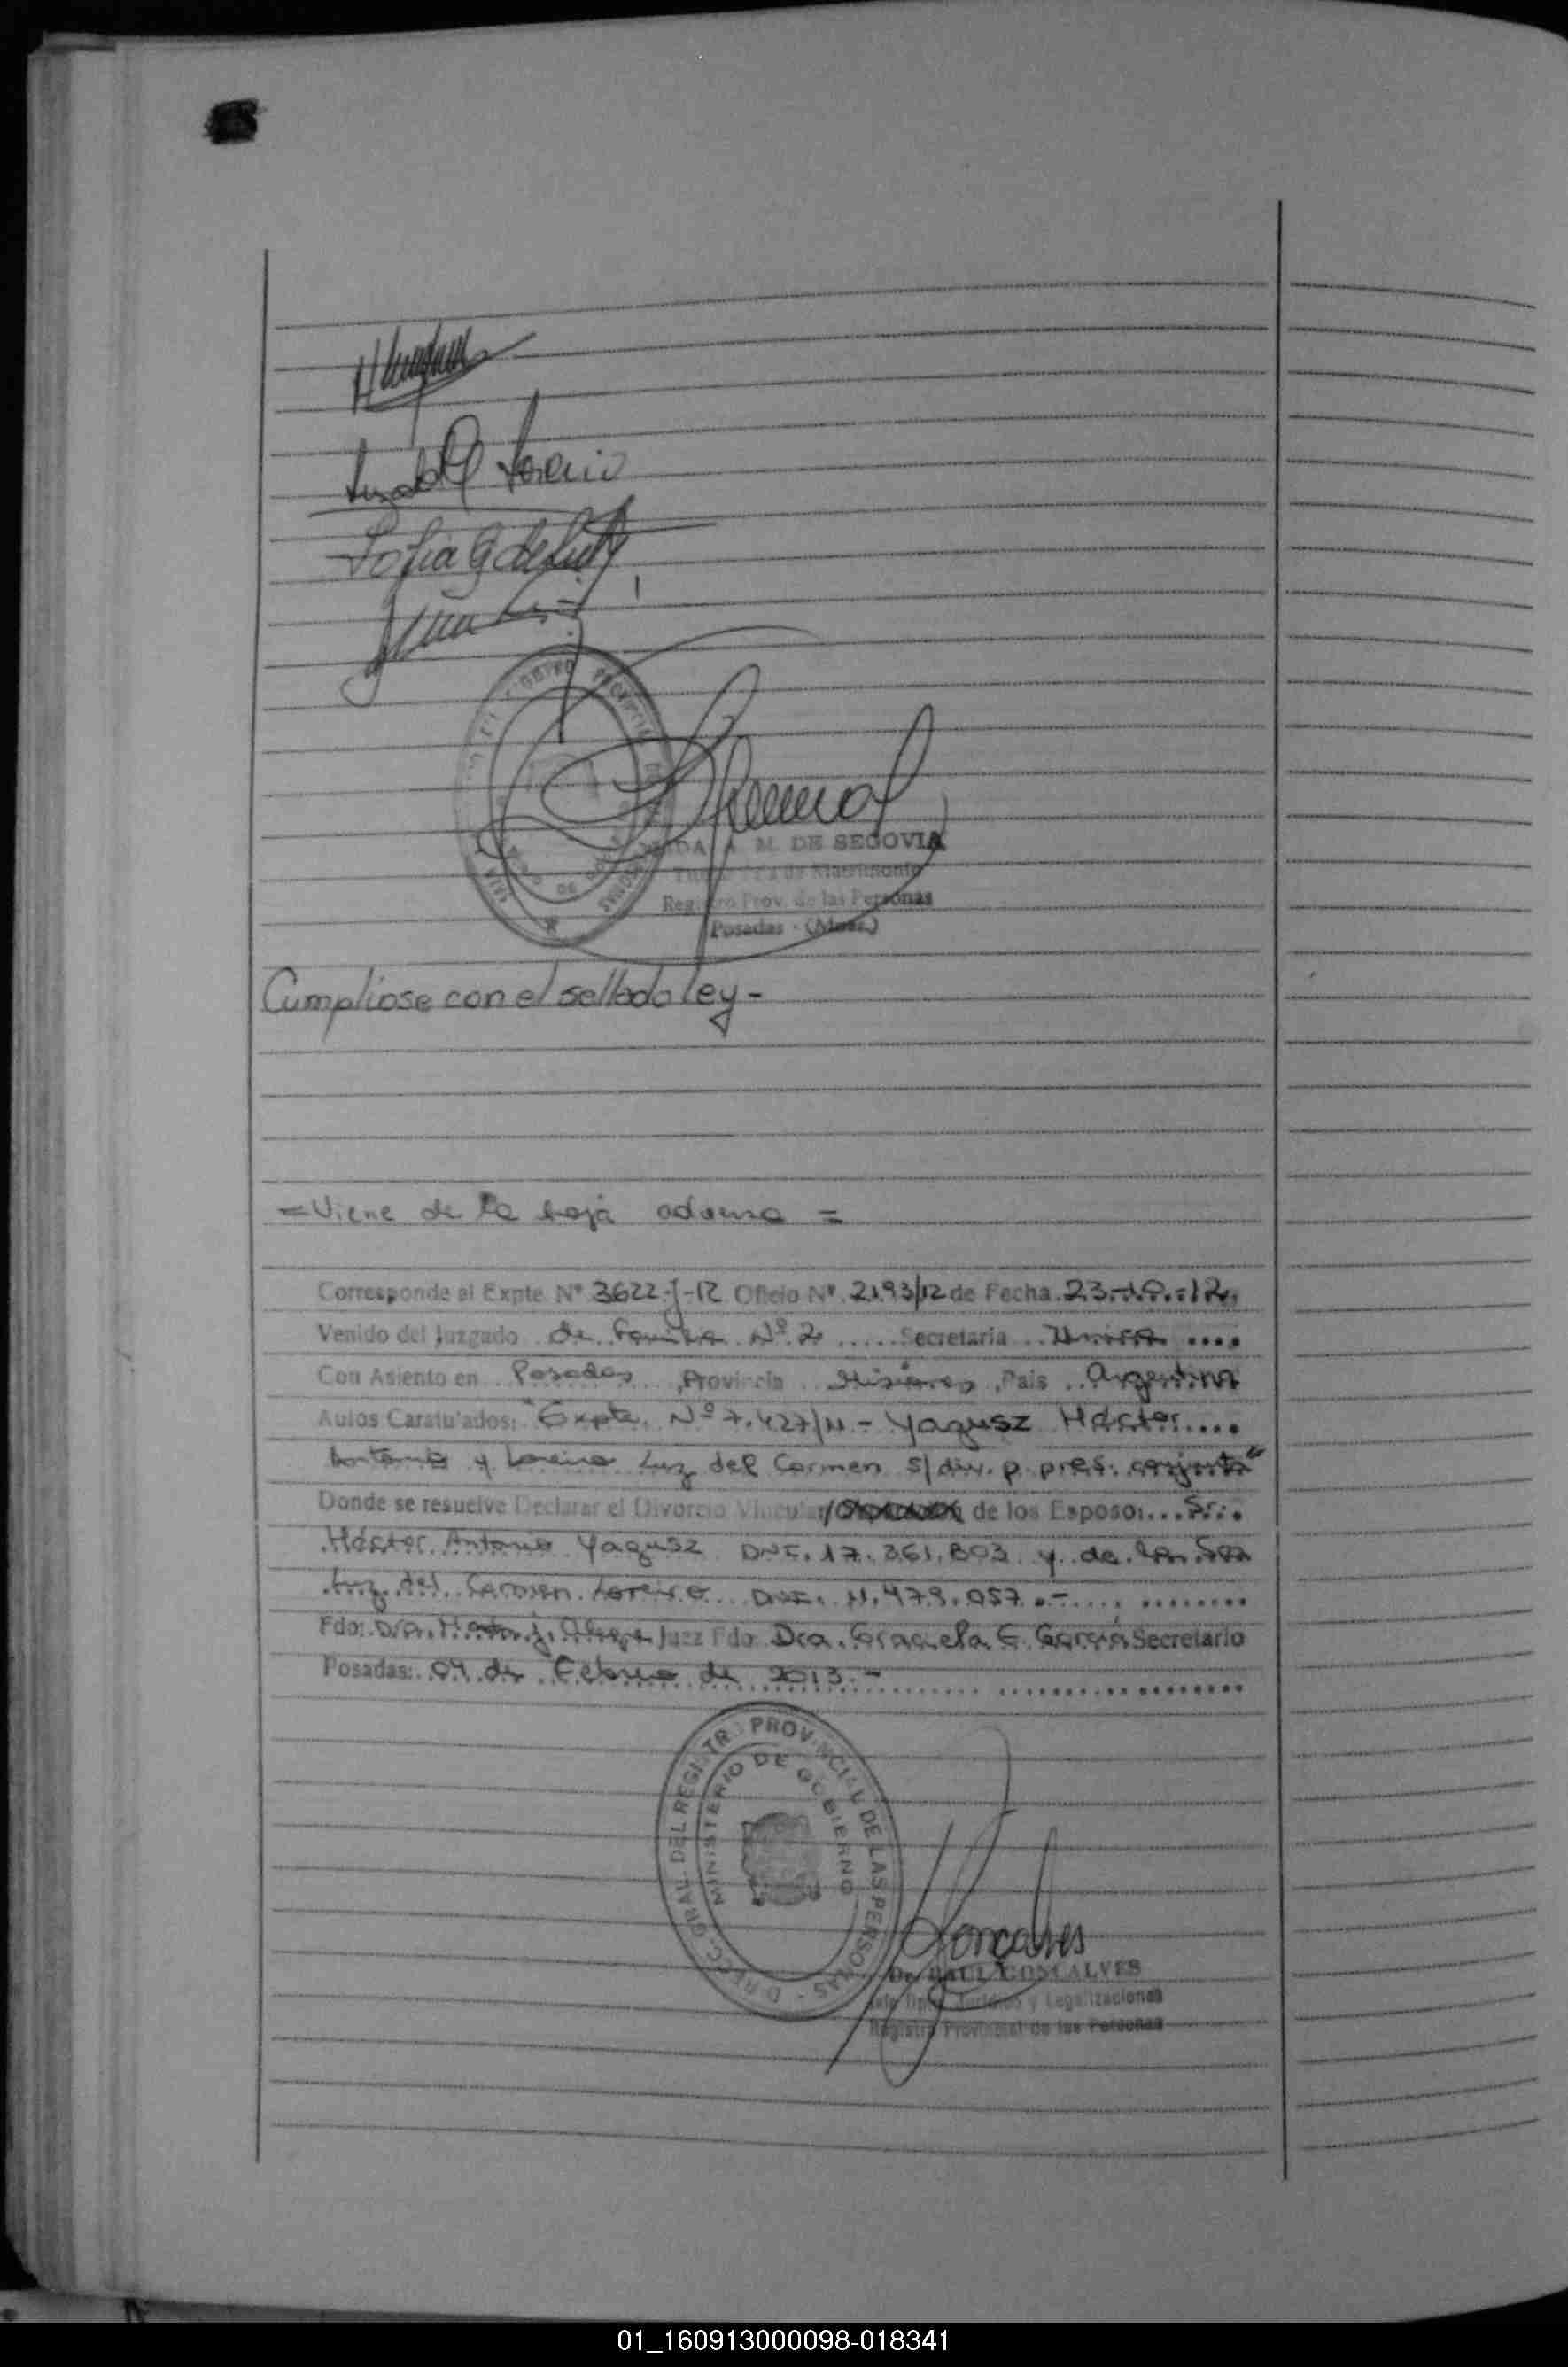 Luz del C Loreiro
Sofia G de
DE SEGOVIA
Registro Prov. de las Personas
Posadas - (Mnes.)
Cumpliose con el sellado ley -
= Viene de la hoja adversa =
Corresponde al Expte Nº 3622-J-12 Oficio Nº 2193/12 de Fecha 23-10-12
Venido del Juzgado de Familia Nº 2 Secretaria Unica
Con Asiento en Posadas, Provincia Misiones, Pais Argentina
Autos Caratulados: "Expte. Nº 7.427/11 - Yagusz Héctor
Antonio y Loreiro Luz del Carmen s/div. p. pres. conjunta"
Donde se resuelve Declarar el Divorcio Vincular de los Esposos Sr.
Héctor Antonio Yagusz DNI. 17.361.803 y de la Sra
Luz del Carmen Loreiro DNI. 11.479.057.-
Fdo: Dra. Juez Fdo: Dra. Graciela E. García Secretario
Posadas: 04 de Febrero de 2013.-
DIRECC. GRAL. DEL REGISTRO PROVINCIAL DE LAS PERSONAS -
MINISTERIO DE GOBIERNO
Goncalves
Dr. RAUL GONCALVES
Jefe Dpto. Jurídico y Legalizaciones
Registro Provincial de las Personas
01_160913000098-018341